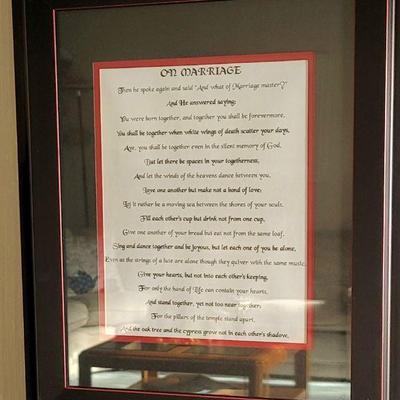 ON MARRIAGE
Then he spoke again and said "And what of Marriage master?"
And He answered saying;
You were born together, and together you shall be forevermore,
You shall be together when white wings of death scatter your days,
Aye, you shall be together even in the silent memory of God,
But let there be spaces in your togetherness,
And let the winds of the heavens dance between you,
Love one another but make not a bond of love;
Let it rather be a moving sea between the shores of your souls.
Fill each other's cup but drink not from one cup,
Give one another of your bread but eat not from the same loaf,
Sing and dance together and be joyous, but let each one of you be alone,
Even as the strings of a lute are alone though they quiver with the same music.
Give your hearts, but not into each other's keeping,
For only the hand of Life can contain your hearts,
And stand together, yet not too near together;
For the pillars of the temple stand apart,
And the oak tree and the cypress grove not in each other's shadow.